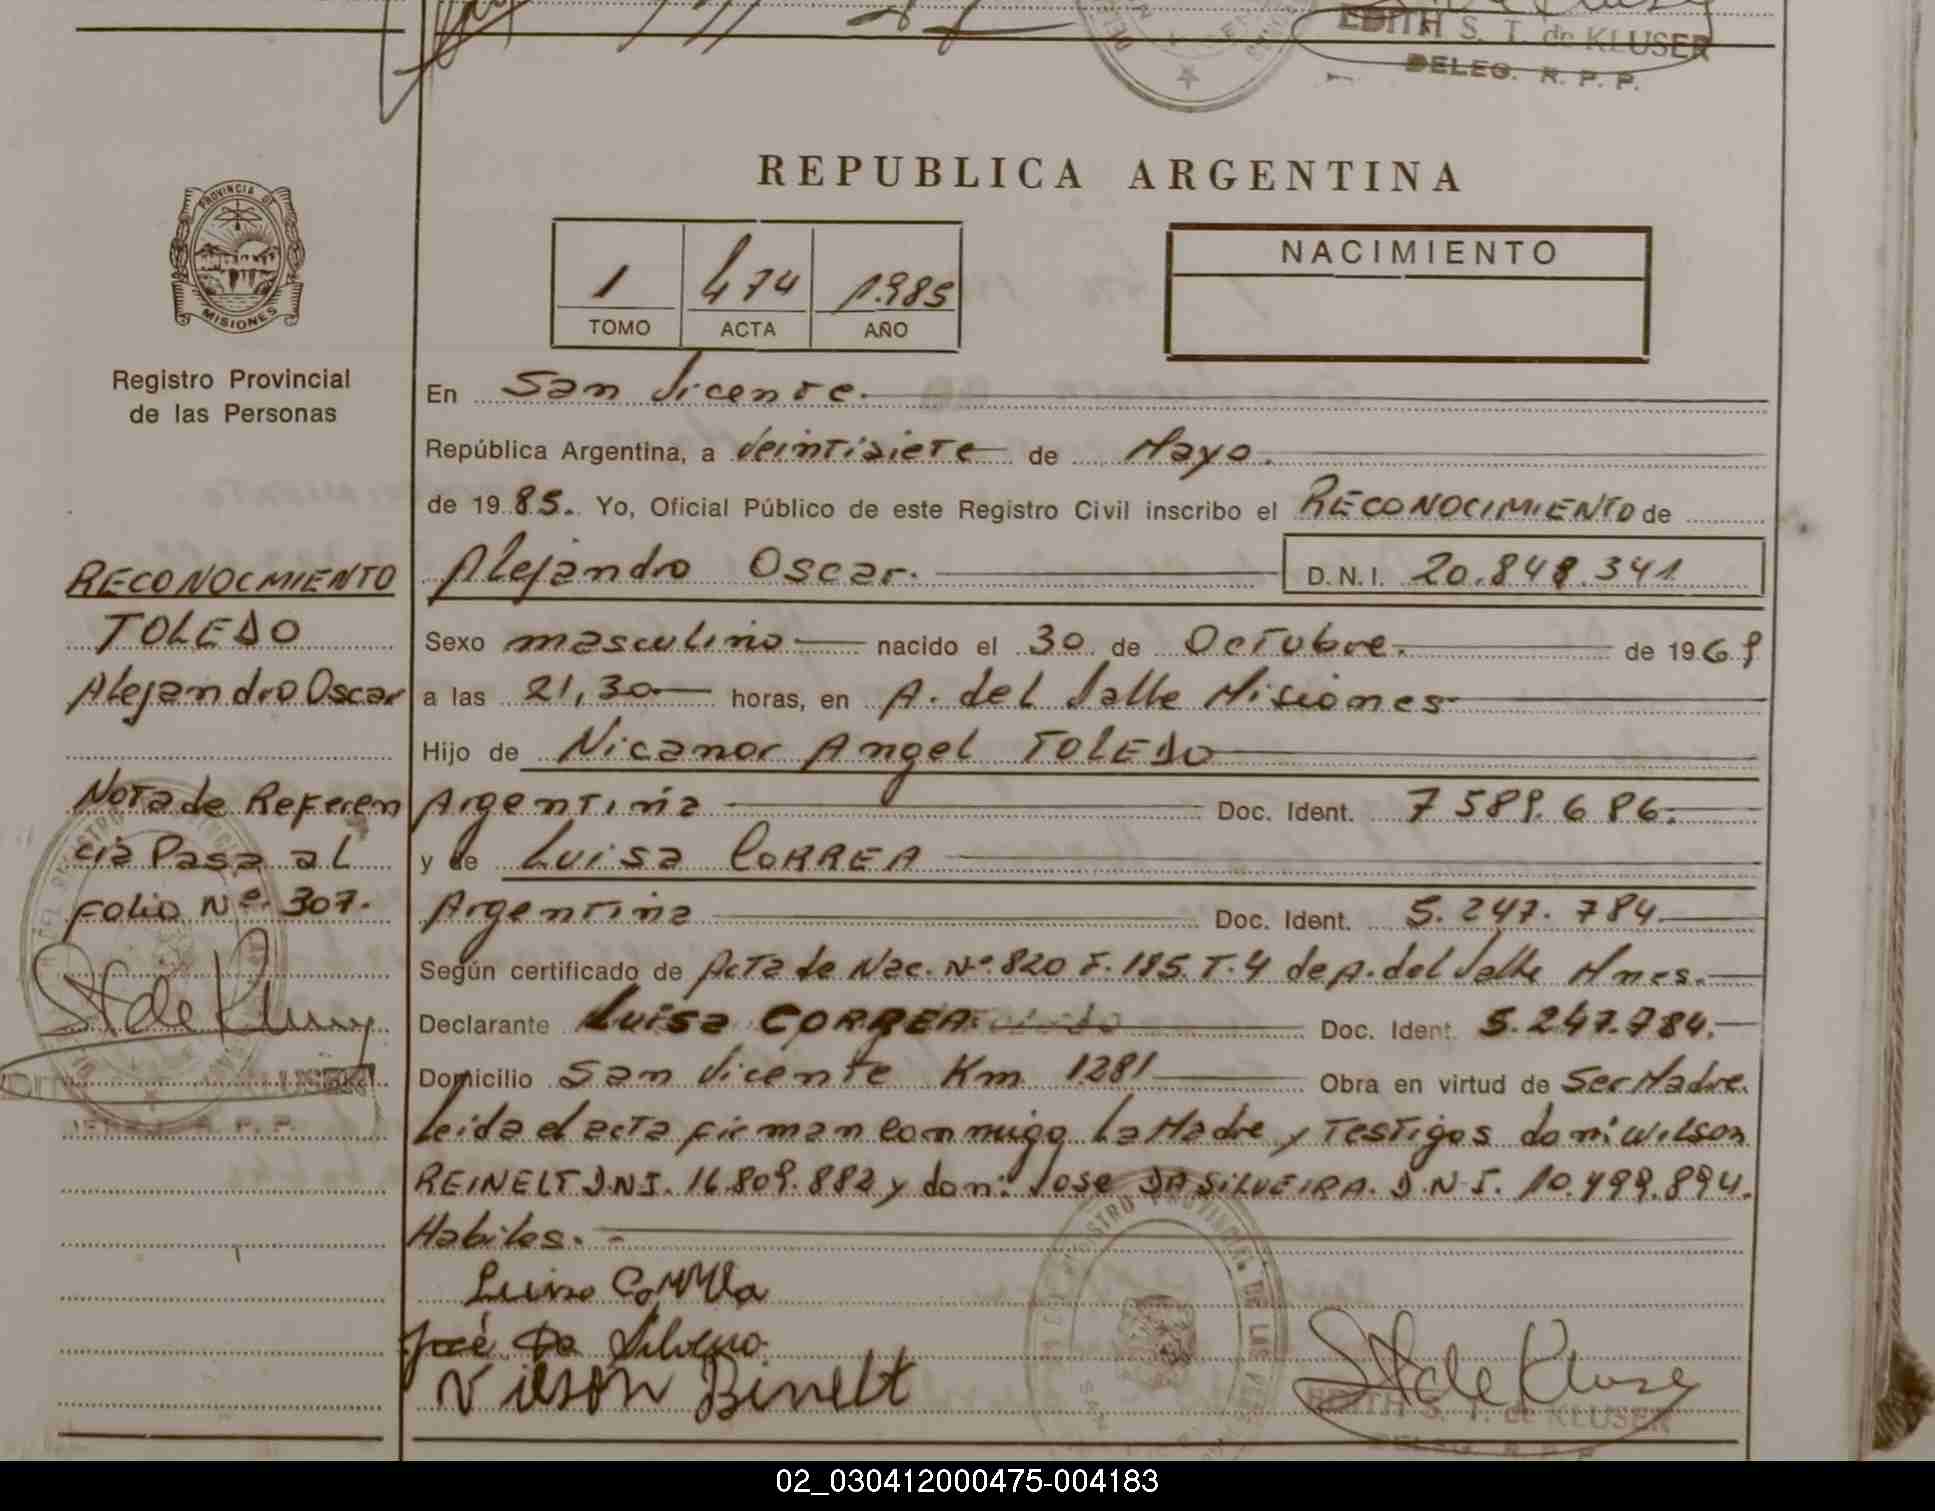 EDITH S. T. de KLUSER
DELEG. R. P. P.
REPUBLICA ARGENTINA
PROVINCIA DE
MISIONES
Registro Provincial
de las Personas
1 474 1.985
TOMO ACTA AÑO
NACIMIENTO
En San Vicente.
República Argentina, a Veintisiete de Mayo.
de 19 85. Yo, Oficial Público de este Registro Civil inscribo el RECONOCIMIENTO de
Alejandro Oscar. D.N.I. 20.848.341
Sexo masculino nacido el 30 de Octubre. de 1969
a las 21,30 horas, en A. del Valle Misiones
Hijo de Nicanor Angel TOLEDO
Argentina Doc. Ident. 7 589.686.
y de Luisa CORREA
Argentina Doc. Ident. 5.247.784
Según certificado de Acta de Nac. Nº 820 F. 185. T. 4 de A. del Valle Mnes.
Declarante Luisa CORREA. Doc. Ident. 5.247.784.
Domicilio San Vicente Km 1281 Obra en virtud de Ser Madre.
Leida el acta firman conmigo La Madre y Testigos don: Wilson
REINELT D.N.I. 16.809.882 y don: Jose DA SILVEIRA. D.N.I. 10.499.894.
Habiles.
RECONOCMIENTO
TOLEDO
Alejandro Oscar
Nota de Referen
cia Pasa al
folio Nº 307.
St de Kluser
Luisa Correa
José Da Silveira
St de Kluser
EDITH S. T. de KLUSER
DELEG. R. P. P.
02_030412000475-004183